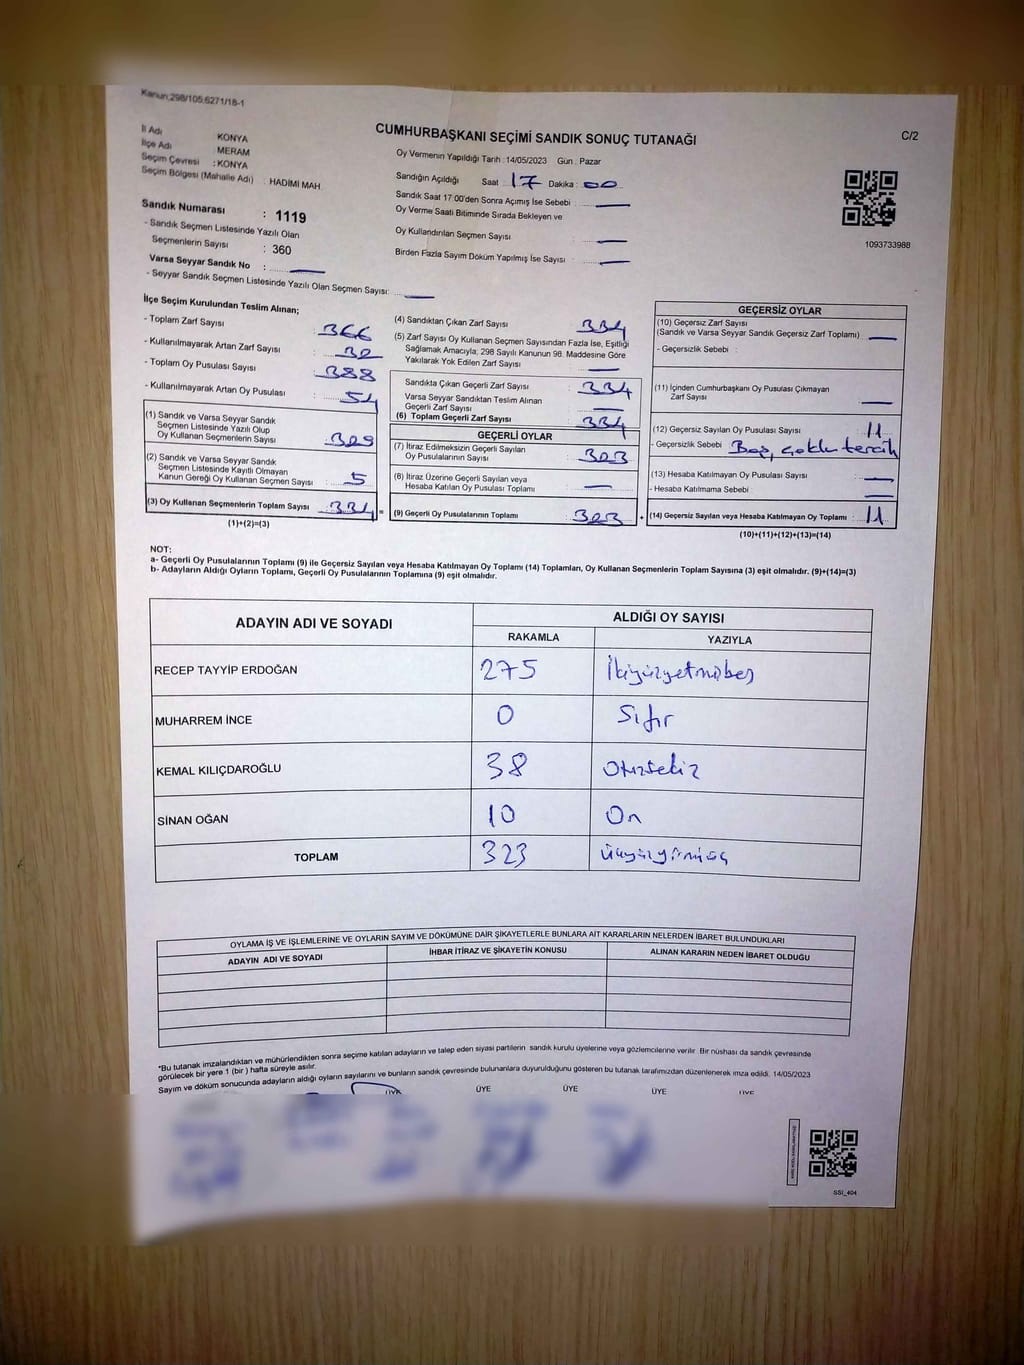 Kanun:298/105,6271/18-1
CUMHURBAŞKANI SEÇİMİ SANDIK SONUÇ TUTANAĞI
C/2
İl Adı KONYA
İlçe Adı : MERAM
Seçim Çevresi : KONYA
Seçim Bölgesi (Mahalle Adı) : HADİMİ MAH
Sandık Numarası : 1119
- Sandık Seçmen Listesinde Yazılı Olan
Seçmenlerin Sayısı : 360
Varsa Seyyar Sandık No :
- Seyyar Sandık Seçmen Listesinde Yazılı Olan Seçmen Sayısı:
Oy Vermenin Yapıldığı Tarih :14/05/2023 Gün : Pazar
Sandığın Açıldığı Saat : 17 Dakika : 00
Sandık Saat 17:00'den Sonra Açımış İse Sebebi :
Oy Verme Saati Bitiminde Sırada Bekleyen ve
Oy Kullandırılan Seçmen Sayısı :
Birden Fazla Sayım Döküm Yapılmış İse Sayısı :
1093733988
İlçe Seçim Kurulundan Teslim Alınan;
- Toplam Zarf Sayısı : 366
- Kullanılmayarak Artan Zarf Sayısı : 32
- Toplam Oy Pusulası Sayısı : 388
- Kullanılmayarak Artan Oy Pusulası : 54
(1) Sandık ve Varsa Seyyar Sandık
Seçmen Listesinde Yazılı Olup
Oy Kullanan Seçmenlerin Sayısı : 329
(2) Sandık ve Varsa Seyyar Sandık
Seçmen Listesinde Kayıtlı Olmayan
Kanun Gereği Oy Kullanan Seçmen Sayısı : 5
(3) Oy Kullanan Seçmenlerin Toplam Sayısı : 334 =
(1)+(2)=(3)
(4) Sandıktan Çıkan Zarf Sayısı : 334
(5) Zarf Sayısı Oy Kullanan Seçmen Sayısından Fazla İse, Eşitliği
Sağlamak Amacıyla; 298 Sayılı Kanunun 98. Maddesine Göre
Yakılarak Yok Edilen Zarf Sayısı :
Sandıkta Çıkan Geçerli Zarf Sayısı : 334
Varsa Seyyar Sandıktan Teslim Alınan
Geçerli Zarf Sayısı :
(6) Toplam Geçerli Zarf Sayısı : 334
GEÇERLİ OYLAR
(7) İtiraz Edilmeksizin Geçerli Sayılan
Oy Pusulalarının Sayısı : 323
(8) İtiraz Üzerine Geçerli Sayılan veya
Hesaba Katılan Oy Pusulası Toplamı :
(9) Geçerli Oy Pusulalarının Toplamı : 323 +
GEÇERSİZ OYLAR
(10) Geçersiz Zarf Sayısı
(Sandık ve Varsa Seyyar Sandık Geçersiz Zarf Toplamı) :
- Geçersizlik Sebebi :
(11) İçinden Cumhurbaşkanı Oy Pusulası Çıkmayan
Zarf Sayısı :
(12) Geçersiz Sayılan Oy Pusulası Sayısı : 11
- Geçersizlik Sebebi : Boş, çoklu tercih
(13) Hesaba Katılmayan Oy Pusulası Sayısı :
- Hesaba Katılmama Sebebi :
(14) Geçersiz Sayılan veya Hesaba Katılmayan Oy Toplamı : 11
(10)+(11)+(12)+(13)=(14)
NOT:
a- Geçerli Oy Pusulalarının Toplamı (9) ile Geçersiz Sayılan veya Hesaba Katılmayan Oy Toplamı (14) Toplamları, Oy Kullanan Seçmenlerin Toplam Sayısına (3) eşit olmalıdır. (9)+(14)=(3)
b- Adayların Aldığı Oyların Toplamı, Geçerli Oy Pusulalarının Toplamına (9) eşit olmalıdır.
ADAYIN ADI VE SOYADI ALDIĞI OY SAYISI
RAKAMLA YAZIYLA
RECEP TAYYİP ERDOĞAN 275 İkiyüzyetmişbeş
MUHARREM İNCE 0 Sıfır
KEMAL KILIÇDAROĞLU 38 Otuzsekiz
SİNAN OĞAN 10 On
TOPLAM 323 üçyüzyirmiüç
OYLAMA İŞ VE İŞLEMLERİNE VE OYLARIN SAYIM VE DÖKÜMÜNE DAİR ŞİKAYETLERLE BUNLARA AİT KARARLARIN NELERDEN İBARET BULUNDUKLARI
ADAYIN ADI VE SOYADI İHBAR İTİRAZ VE ŞİKAYETİN KONUSU ALINAN KARARIN NEDEN İBARET OLDUĞU
*Bu tutanak imzalandıktan ve mühürlendikten sonra seçime katılan adayların ve talep eden siyasi partilerin sandık kurulu üyelerine veya gözlemcilerine verilir. Bir nüshası da sandık çevresinde
görülecek bir yere 1 (bir ) hafta süreyle asılır.
Sayım ve döküm sonucunda adayların aldığı oyların sayılarını ve bunların sandık çevresinde bulunanlara duyurulduğunu gösteren bu tutanak tarafımızdan düzenlenerek imza edildi. 14/05/2023
ÜYE ÜYE ÜYE ÜYE ÜYE
SSI_404